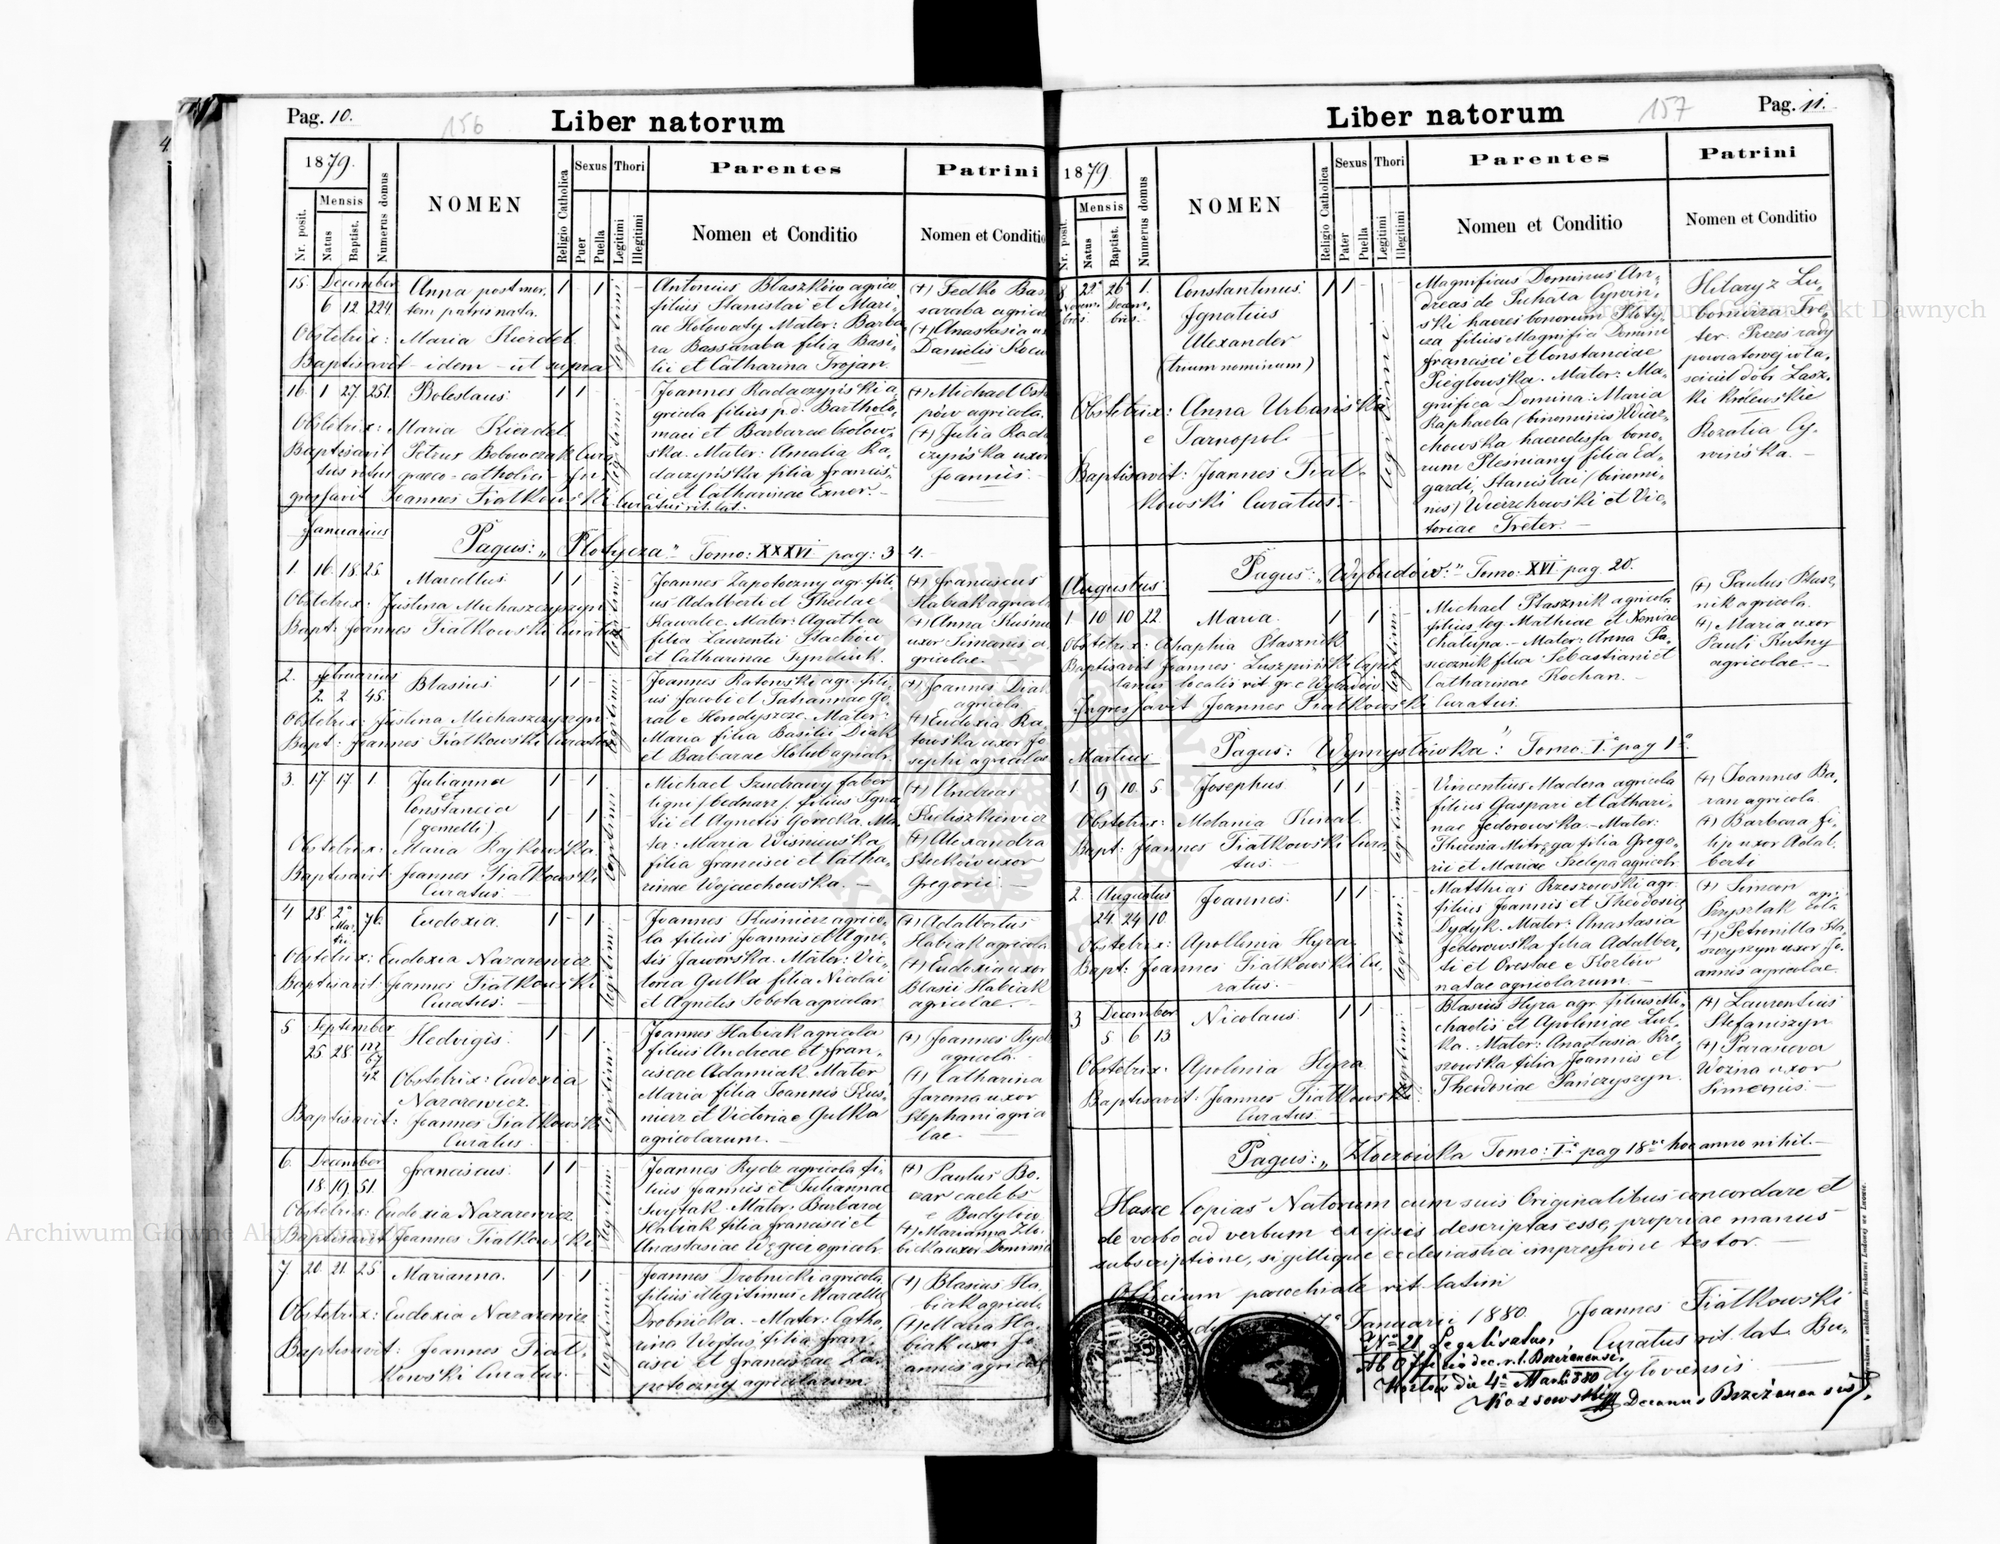 Pag. 10.
156
Liber natorum
1879.
Nr. posit.
Mensis
Natus
Baptist.
Numerus domus
NOMEN
Religio Catholica
Sexus
Puer
Puella
Thori
Legitimi
Illegitimi
Parentes
Nomen et Conditio
Patrini
Nomen et Conditio
15. December
6 12 224.
Anna post mor,
tem patris nata.
1 - 1
legitimi
Obstetrix: Maria Kierdel.
Baptisavit - idem - ut supra
Antonius Blaszków agrico
filius Stanislai et Mari,
ae Hołowaty Mater: Barba
ra Bassaraba filia Basi,
lii et Catharina Trojan.
(+) Fedko Bas
saraba agricol
(+) Anastasia u
Danielis
16. 1 27. 251.
Boleslaus.
1 1
Obstetrix: Maria Kierdel.
Baptisavit Petrus Bobowczak Cura
tus ritus graeco-catholici - In,
grossavit Joannes Fiatkowski Curatus rit. lat.
Joannes Radaczyński a
gricola filius p.d. Bartholo,
maei et Barbarae
ska. Mater: Amalia Ra,
daczyńska filia Francis,
ci et Catharinae Exner.-
(+) Michael Ost
pów agricola.
(+) Julia Rada
czyńska uxor
Joannis.-
Januarius
Pagus: "Płotycza" Tomo: XXXVI pag: 3 4.-
1. 16. 18. 25.
Marcellus.
1 1
Obstetrix: Justina Michaszczyszyn
Bapt: Joannes Fiatkowski Curatus
Joannes Zapotoczny agr. fili
us Adalberti et Theclae
Kawalec. Mater: Agatha
filia Laurentii Stachów
et Catharinae Tyndiuk.
(+) Franciscus
Habiak agricola
(+) Anna Kuśnie
uxor Simonis a,
gricolae.-
2. Februarius
2. 2 45.
Blasius.
1 1
Obstetrix: Justina Michaszczyszyn
Bapt: Joannes Fiatkowski Curatus
Joannes Ratowski agr. fili
us Jacobi et Tatiannae Go,
ral e Horodyszcze. Mater:
Maria filia Basilii Diak
et Barbarae Holub agricolar.
(+) Joannes Diak
agricola
(+) Eudoxia Ra,
towska uxor Jo
sephi agricolae
3. 17 17. 1
Julianna
et
Constancia
(gemelli)
1 - 1
1 - 1
Obstetrix: Maria Rajkowska.
Baptisavit Joannes Fiatkowski
Curatus.-
Michael Szudrawy faber
ligni /bednarz/ filius Igna
tii et Agnetis Górecka. Ma,
ter: Maria Wiśniewska
filia Francisci et Catha,
rinae Wojciechowska.-
(+) Andreas
Kuliszkiewicz
(+) Alexandra
uxor
Gregorii.-
4 28 2°
Mar,
tii
76.
Eudoxia.
1 - 1
Obstetrix: Eudoxia Nazarewicz
Baptisavit Joannes Fiatkowski
Curatus.-
Joannes Kuśnierz agrico,
la filius Joannis et Agne,
tis Jaworska. Mater: Vic,
toria Gulka filia Nicolai
et Agnetis Sobota agricolar.
(+) Adalbertus
Habiak agricola
(+) Eudoxia uxor
Blasii Habiak
agricolae.-
5 September
25 28.
67
42
Hedvigis.
1 - 1
Obstetrix: Eudoxia
Nazarewicz.
Baptisavit: Joannes Fiatkowski
Curatus
Joannes Habiak agricola
filius Andreae et Fran,
ciscae Adamiak. Mater
Maria filia Joannis Kuś,
nierz et Victoriae Gulka
agricolarum.-
(+) Joannes Rydz
agricola.
(+) Catharina
Jarema uxor
Stephani agrico
lae.-
6. December
18. 19. 51.
Franciscus.
1 1
Obstetrix: Eudoxia Nazarewicz
Baptisavit Joannes Fiatkowski.
Joannes Rydz agricola fi,
lius Joannis et Juliannae
Swytak. Mater: Barbara
Habiak filia Francisci et
Anastasiae Węgier agricolr.
(+) Paulus Bo,
car caelebs
e Budyłów
(+) Marianna
uxor Dominici
7. 20. 21. 25
Marianna.
1 - 1
Obstetrix: Eudoxia Nazarewicz
Baptisavit: Joannes Fiat,
kowski Curatus.-
Joannes Drobnicki agricola
filius illegitimus Marcellae
Drobnicka.- Mater: Catha,
rina Wojtuś filia Fran,
cisci et Franciscae Za,
potoczny agricolarum.
(+) Blasius Ha,
biak agricola
(+) Maria Ha,
biak uxor Jo
annis agricolae
Liber natorum
157
Pag. 11.
1879.
Nr. posit.
Mensis
Natus
Baptist.
Numerus domus
NOMEN
Religio Catholica
Sexus
Puer
Puella
Thori
Legitimi
Illegitimi
Parentes
Nomen et Conditio
Patrini
Nomen et Conditio
8. 22° 26° 1.
Novem, Decem,
bris bris
Constantinus
Ignatius
Alexander
(trium nominum)
1 1
legitimi
Obstetrix: Anna Urbańska
e Tarnopol.-
Baptisavit: Joannes Fiat,
kowski Curatus.-
Magnificus Dominus An,
dreas de Puchała Cywiń,
ski haeres bonorum Płoty,
cza filius Magnifici Domini
Francisci et Constanciae
Piegłowska. Mater: Ma,
gnifica Domina: Maria
Raphaela (binominis) Wierz,
chowska haeredissa bono,
rum Pleśniany filia Ed,
gardi, Stanislai (binomi,
nis) Wierzchowski et Vic,
toriae Treter.-
Hilary z Lu,
bomirza Tre,
ter. Prezes rady
powiatowej wła,
sciciel dóbr Łasz,
ki królewskie
Rozalia Cy,
wińska.-
Pagus: "Wybudów."- Tomo: XVI pag. 20.
Augustus
1 10 10 22.
Maria.
1 - 1
Obstetrix: Ahaphia Ptasznik
Baptisavit Joannes Luszpiński Capel
lanus localis rit. gr. c. Wybudów.
Ingrossavit Joannes Fiatkowski Curatus.
Michael Ptasznik agricola
filius leg. Mathiae et Xeniae
Chałupa.- Mater: Anna Pa,
siecznik filia Sebastiani et
Catharinae Kochan.-
(+) Paulus Ptasz,
nik agricola.
(+) Maria uxor
Pauli Kutny
agricolae.-
Pagus: "Wymysłówka": Tomo I° pag 1°.
Martius
1. 9 10. 5
Josephus
1 1
Obstetrix: Melania Kinal.
Bapt: Joannes Fiatkowski Cura,
tus.-
Vincentius Madera agricola
filius Gaspari et Cathari,
nae Fedorowska.- Mater:
Theresia Mitręga filia Grego,
rii et Mariae Szelepa agricolr.
(+) Joannes Ba,
ran agricola
(+) Barbara Fi,
lip uxor Adal,
berti
2. Augustus
24. 24 10.
Joannes.
1 1
Obstetrix: Apollonia Hyra
Bapt: Joannes Fiatkowski Cu,
ratus.-
Matthias Rzeszowski agr.
filius Joannis et Theodosia
Dydyk. Mater: Anastasia
Fedorowska filia Adalber,
ti et Orestae e Kozłów
natae agricolarum.-
(+) Simeon
agri,
cola
(+) Petronilla
uxor Jo,
annis agricolae.
3 December
5 6 13
Nicolaus.
1 1
Obstetrix: Apolonia Hyra
Baptisavit: Joannes Fiatkowski
Curatus
Blasius Hyra agr. filius Mi,
chaelis et Apoloniae Lul,
ka. Mater: Anastasia Rze,
szowska filia Joannis et
Theodosiae Pańczyszyn.
(+) Laurentius
Stefaniszyn
(+) Parasceva
Wozna uxor
Simeonis.-
Pagus: "Złoczówka Tomo: I° pag 18va hoc anno nihil.-
Hasce Copias Natorum cum suis Originalibus concordare et
de verbo ad verbum ex ipsis descriptas esse, propriae manus
subscriptione, sigillique ecclesiastici impressione testor.-
Officium parochiale rit. latini
7° Januarii 1880. Joannes Fiatkowski
Curatus rit. lat. Bu,
dyłoviensis
N° 21 Legalisatur,
Ab Officio dec. r. l. Brzeżanensi.
Kozłów die 4° Martii 880
Kossowski Decanus Brzeżanensis.
Archiwum Główne Akt Dawnych
Archiwum Główne Akt Dawnych